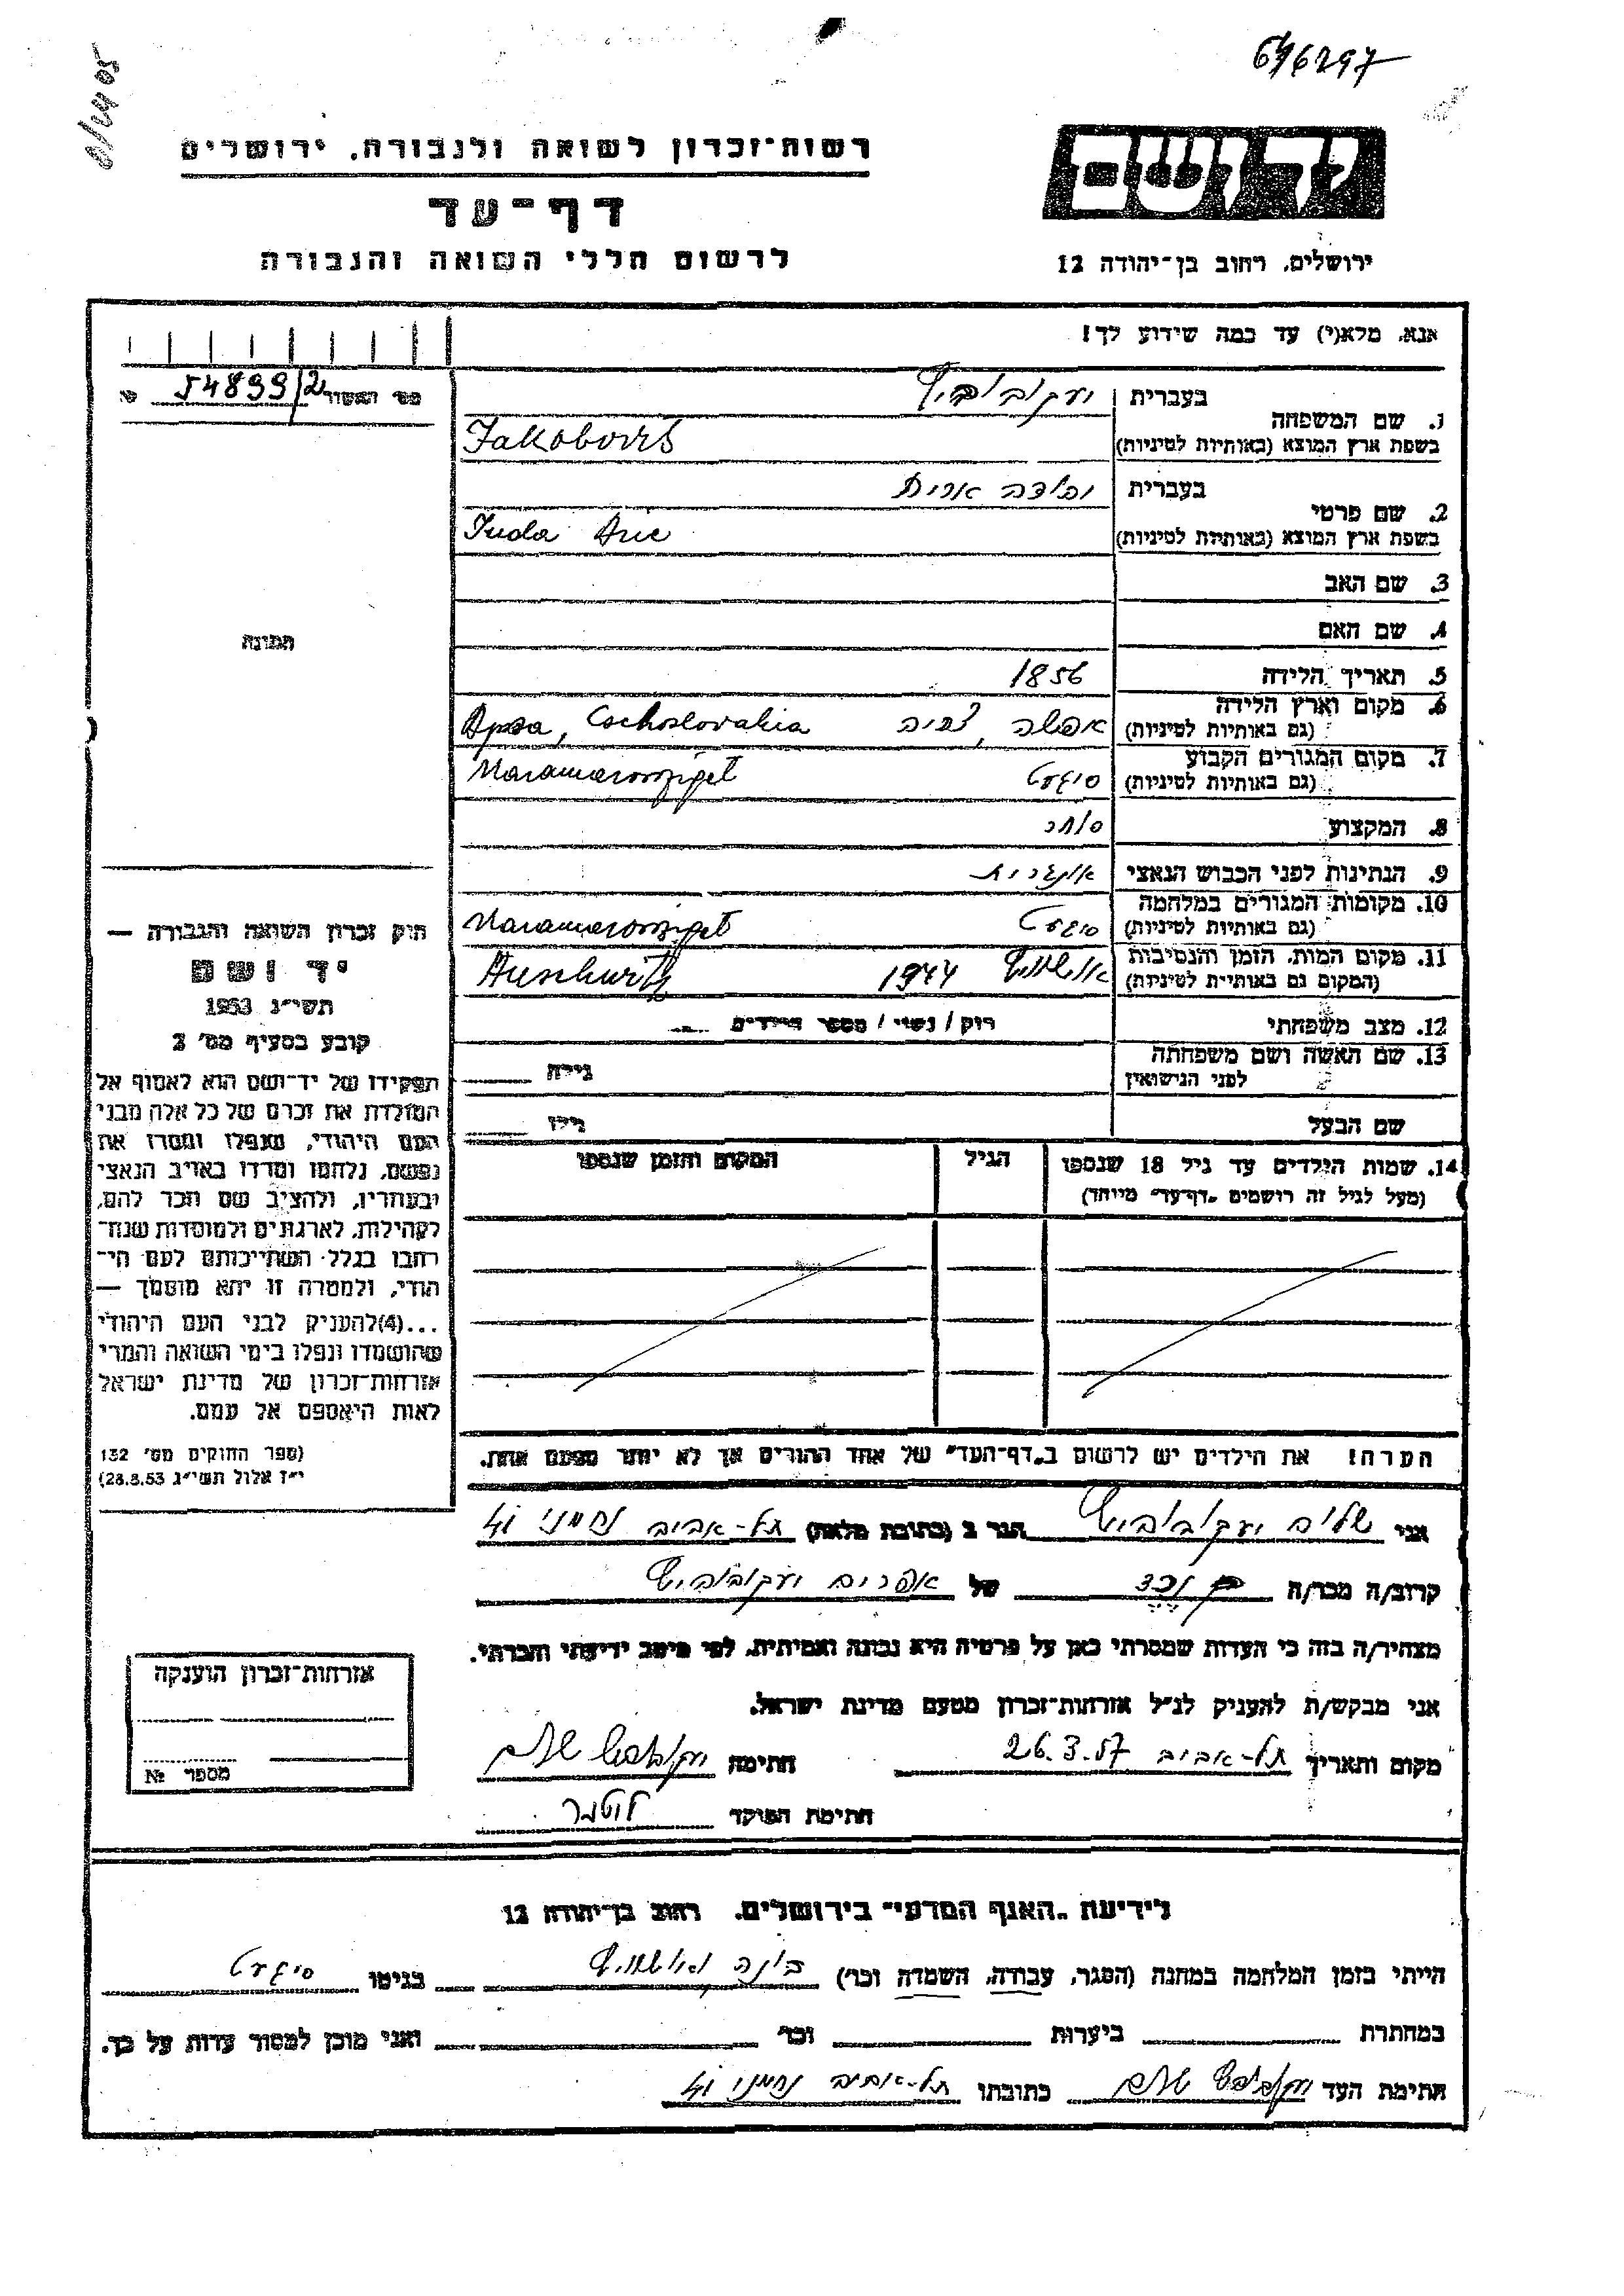 646297
רשות־זכרון לשואה ולגבורה. ירושלים
דף־עד
לרשום חללי השואה והגבורה
ידושם
ירושלים. רחוב בן־יהודה 12
אנא. מלא(י) עד כמה שידוע לך!
מס׳ האשור 54899/2
תמונה
1. שם המשפחה
בעברית יעקובוביץ
בשפת ארץ המוצא (באותיות לטיניות) Jakobovits
2. שם פרטי
בעברית יהודה אריה
בשפת ארץ המוצא (באותיות לטיניות) Juda Arie
3. שם האב
4. שם האם
5. תאריך הלידה 1856
6. מקום וארץ הלידה
(גם באותיות לטיניות) Apsa, Cechoslovakia
7. מקום המגורים הקבוע
(גם באותיות לטיניות) סיגעט Maramarossziget
8. המקצוע סוחר
9. הנתינות לפני הכבוש הנאצי אונגרית
10. מקומות המגורים במלחמה
(גם באותיות לטיניות) סיגעט Maramarossziget
11. מקום המות. הזמן והנסיבות
(המקום גם באותיות לטיניות) אושוויץ 1944 Auschwitz
12. מצב משפחתי רוק / נשוי / מספר הילדים
13. שם האשה ושם משפחתה
לפני הנישואין גילה
שם הבעל גילו
14. שמות הילדים עד גיל 18 שנספו הגיל המקום והזמן שנספו
(מעל לגיל זה רושמים „דף־עד״ מיוחד)
הערה! את הילדים יש לרשום ב„דף־העד״ של אחד ההורים אך לא יותר מפעם אחת.
חוק זכרון השואה והגבורה —
יד ושם
תשי״ג 1953
קובע בסעיף מס׳ 2
תפקידו של יד־ושם הוא לאסוף אל
המולדת את זכרם של כל אלה מבני
העם היהודי, שנפלו ומסרו את
נפשם, נלחמו ומרדו באויב הנאצי
ובעוזריו, ולהציב שם וזכר להם,
לקהילות, לארגונים ולמוסדות שנח־
רבו בגלל השתייכותם לעם הי־
הודי, ולמטרה זו יהא מוסמך —
...(4)להעניק לבני העם היהודי
שהושמדו ונפלו בימי השואה והמרי
אזרחות־זכרון של מדינת ישראל
לאות היאספם אל עמם.
(ספר החוקים מס׳ 132
י״ז אלול תשי״ג 28.8.53)
אני שלום יעקובוביץ הגר ב (כתובת מלאה) תל-אביב נחמני
קרוב/ה מכר/ה נכד של אפרים יעקובוביץ
מצהיר/ה בזה כי העדות שמסרתי כאן על פרטיה היא נכונה ואמיתית, לפי מיטב ידיעתי והכרתי.
אני מבקש/ת להעניק לנ״ל אזרחות־זכרון מטעם מדינת ישראל.
מקום ותאריך תל-אביב 26.3.57 חתימה יעקובוביץ שלום
חתימת הפוקד
אזרחות־זכרון הוענקה
מספר №
לידיעת „האגף המדעי״ בירושלים. רחוב בן־יהודה 12
הייתי בזמן המלחמה במחנה (הסגר, עבודה, השמדה וכו׳) בונה אושוויץ בגיטו סיגעט
במחתרת ביערות וכו׳ ואני מוכן למסור עדות על כך.
חתימת העד יעקובוביץ שלום כתובתו תל-אביב נחמני